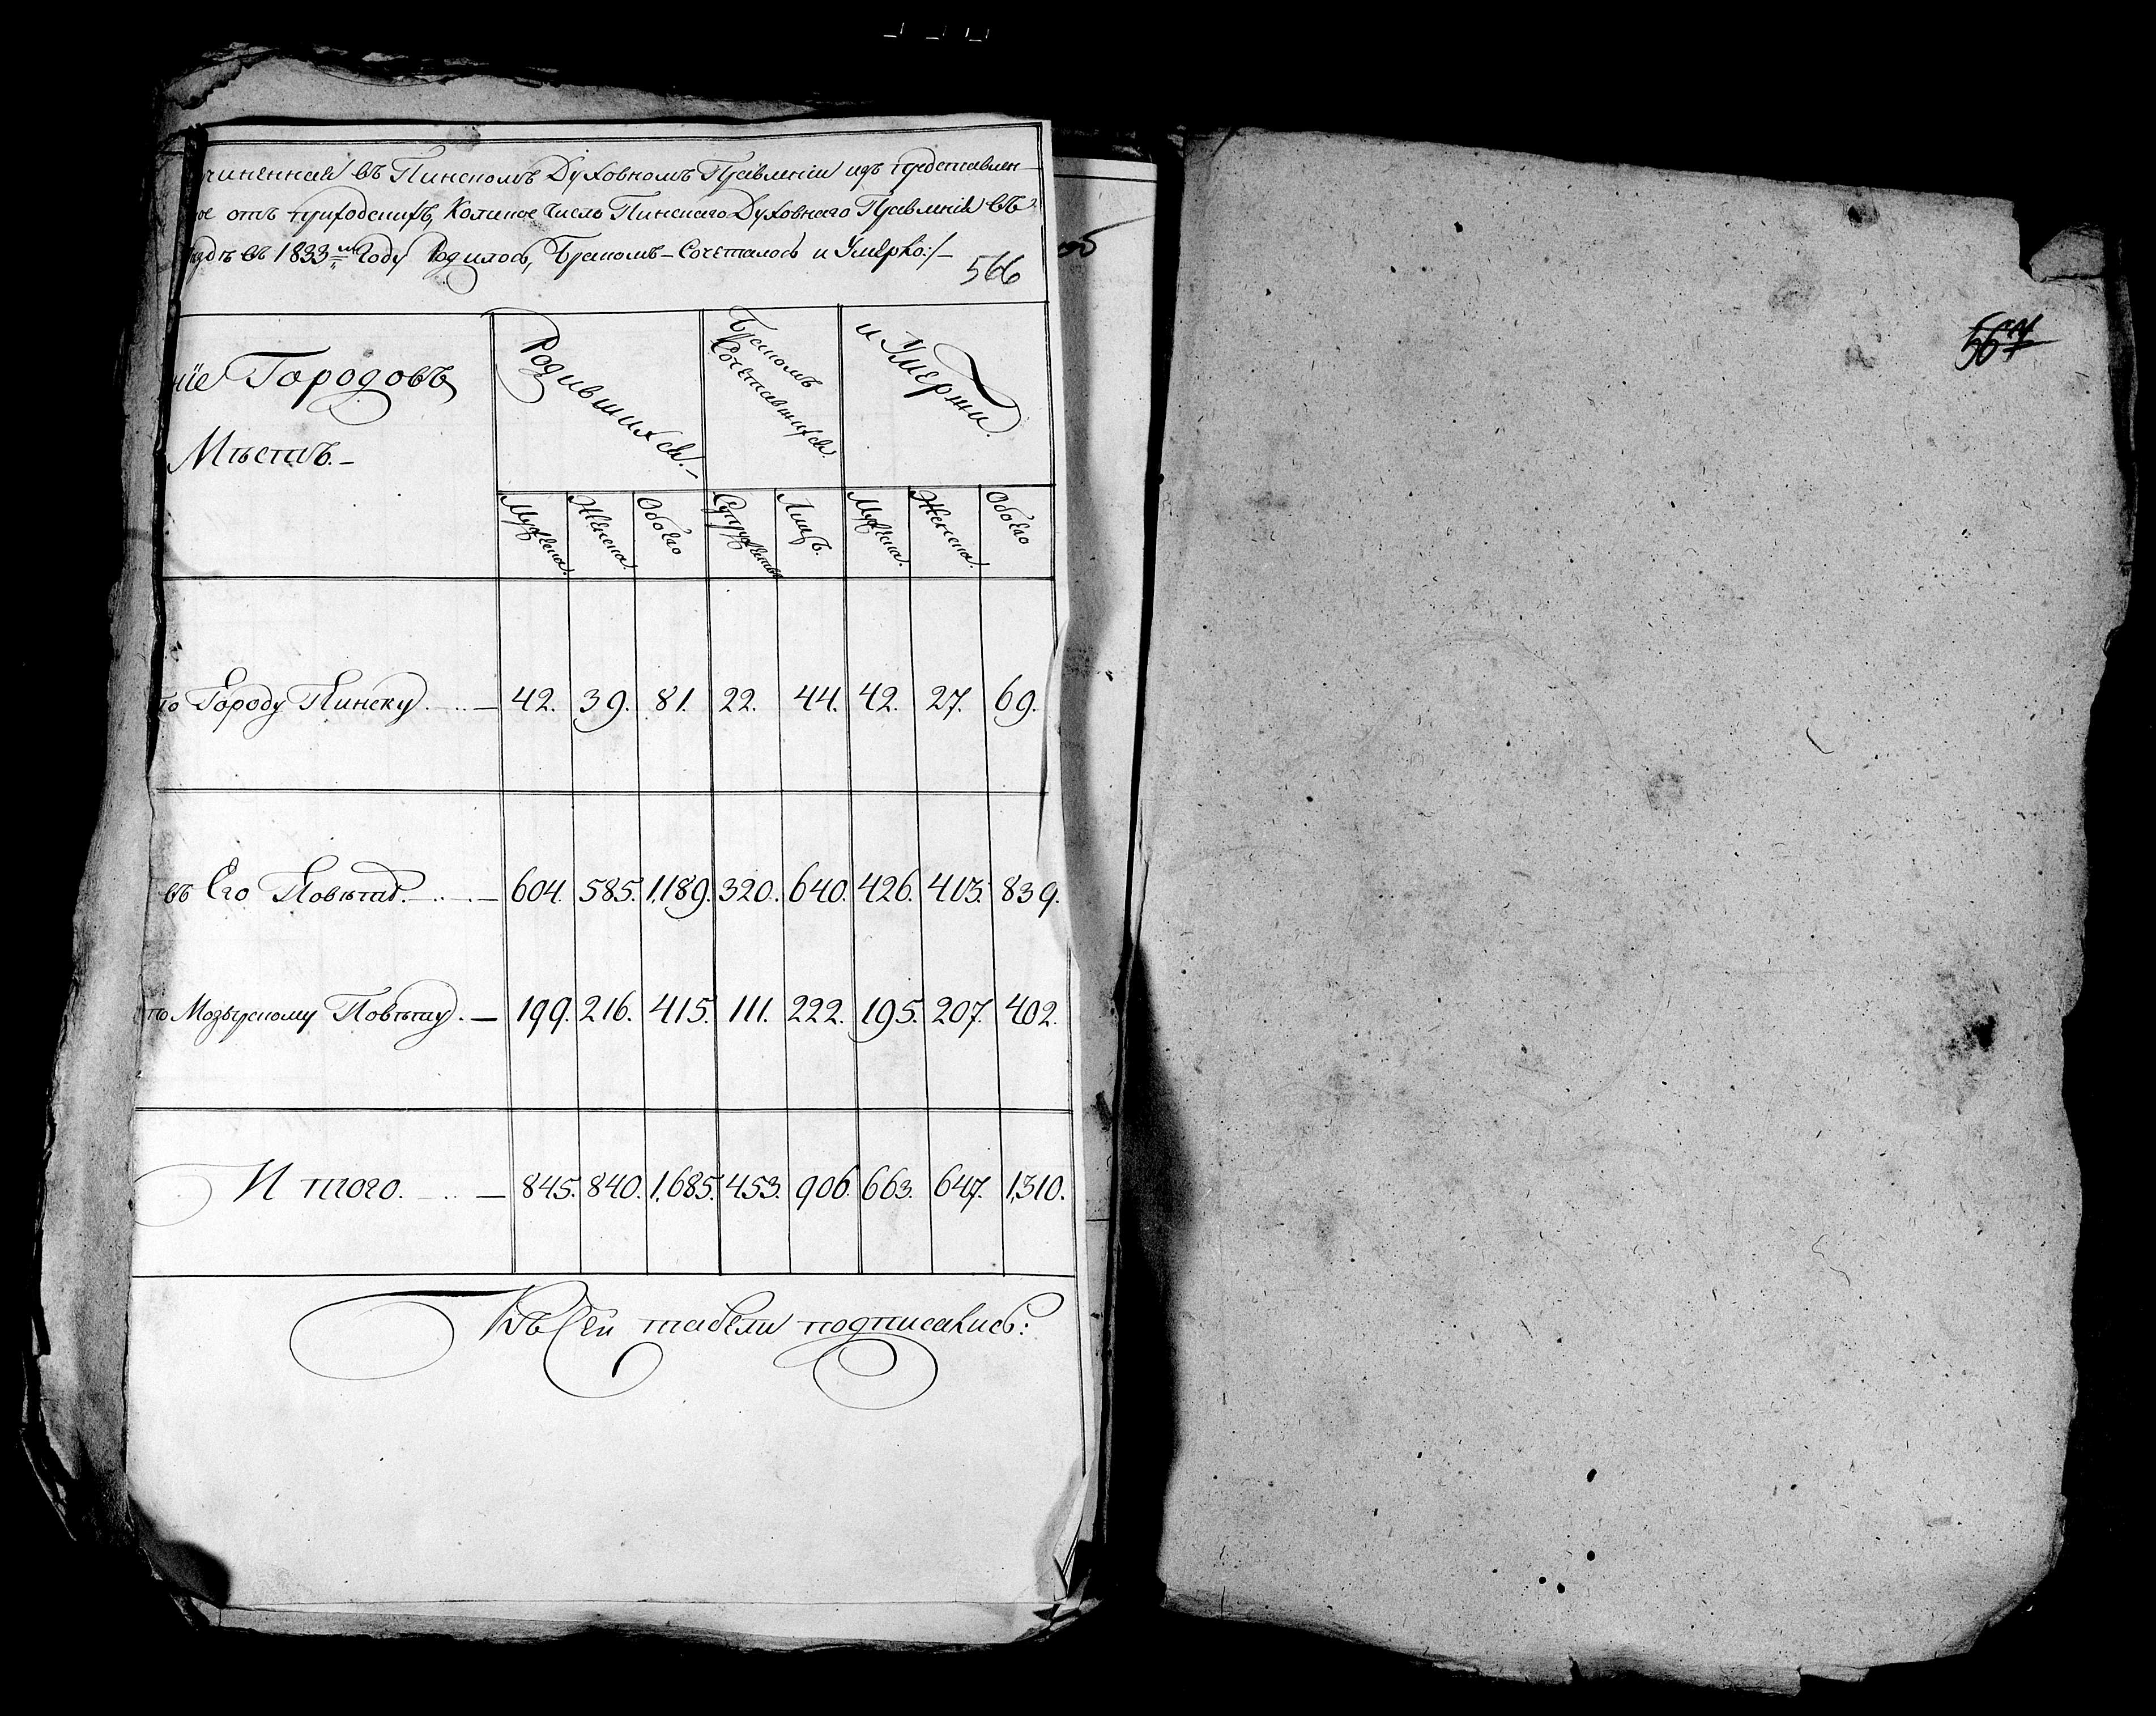 чиненная въ Пинскомъ Духовномъ Правленіи изъ представлен-
отъ приходскихъ, Коликое Число Пинскаго Духовнаго Правленія въ
въ 1833мъ Году Родилось, Бракомъ - Сочеталось и Умерло:/-
566
ніе Городовъ
Мѣстъ.-
Родившихся.-
Бракомъ
Сочетавшихся.
и Умерши.
Мужеска. Женска. Обоего Супружествъ Лицъ. Мужеска. Женска. Обоего
по Городу Пинску. - 42. 39. 81. 22. 44. 42. 27. 69.
въ Его Повѣтѣ. - 604. 585. 1,189. 320. 640. 426. 413. 839.
по Мозырскому Повѣту. - 199. 216. 415. 111. 222. 195. 207. 402.
И того. - 845. 840. 1,685. 453. 906. 663. 647. 1,310.
Къ Сей табели подписались:
567